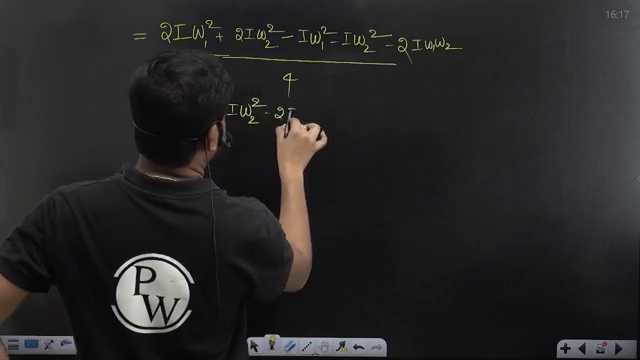 16:17
= 2Iω₁² + 2Iω₂² - Iω₁² - Iω₂² - 2Iω₁ω₂
4
Iω₂² - 2I
PW